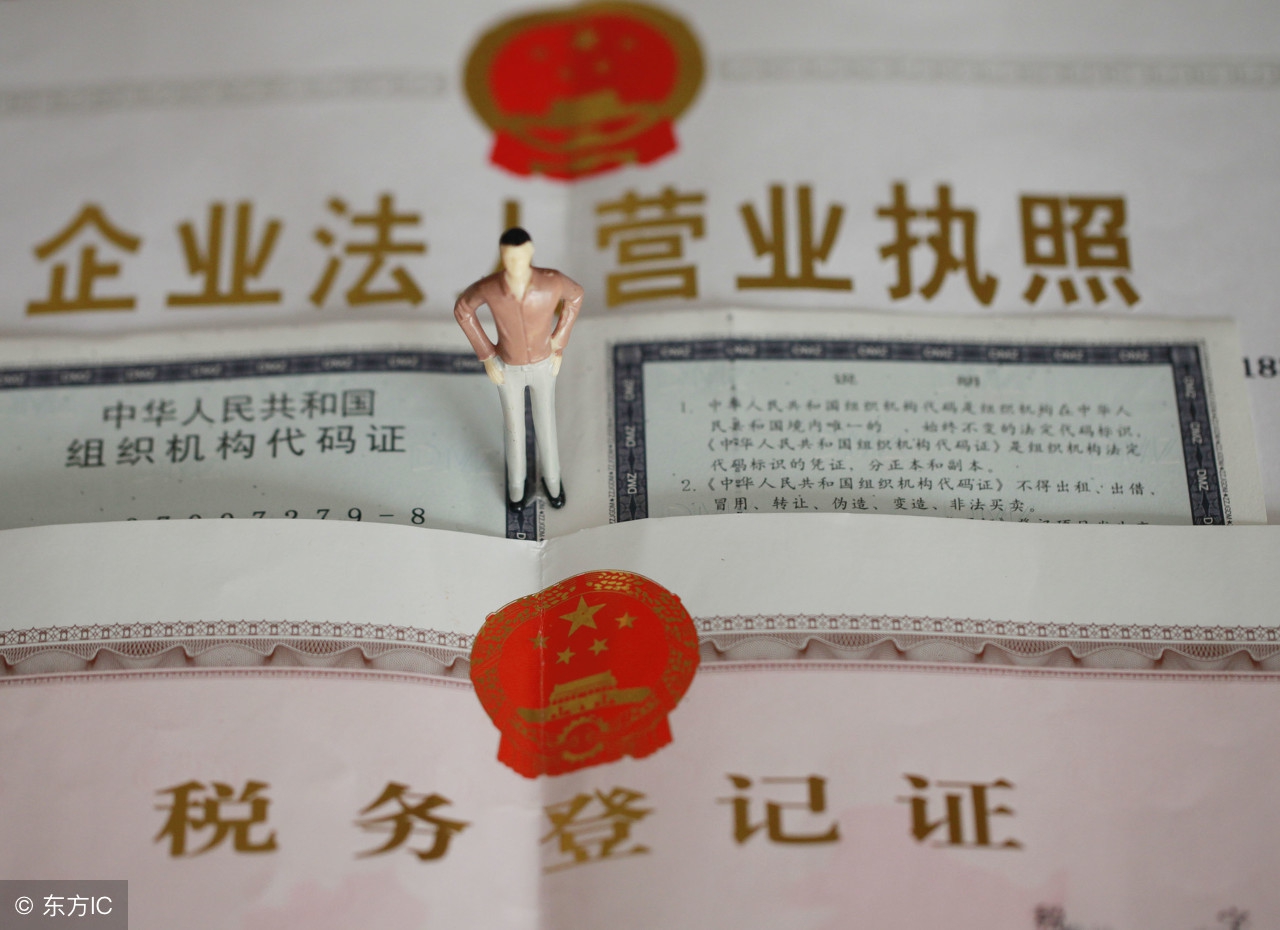 企业法人营业执照
中华人民共和国
组织机构代码证
279-8
说 明
1. 中华人民共和国组织机构代码是组织机构在中华人
民共和国境内唯一的 、始终不变的法定代码标识，
《中华人民共和国组织机构代码证》是组织机构法定
代码标识的凭证，分正本和副本。
2.《中华人民共和国组织机构代码证》不得出租、出借、
冒用、转让、伪造、变造、非法买卖。
税务登记证
字
© 东方IC